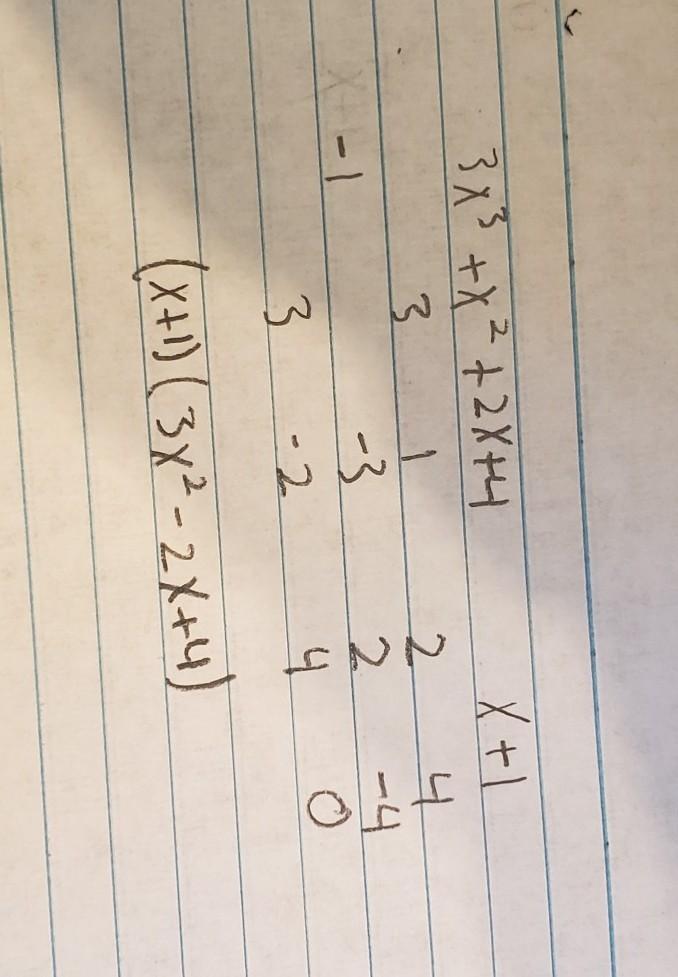 3x³ + x² + 2x + 4 x + 1
3 1 2 4
-1 -3 2 -4
3 -2 4 0
(x+1) (3x² - 2x + 4)